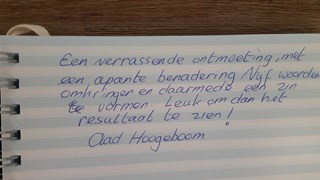 Een verrassende ontmoeting, met
een apante benadering Vijf woorden
omkringen en daarmede een zin
te vormen. Leuk om dan het
resultaat te zien!
Aad Hoogeboom